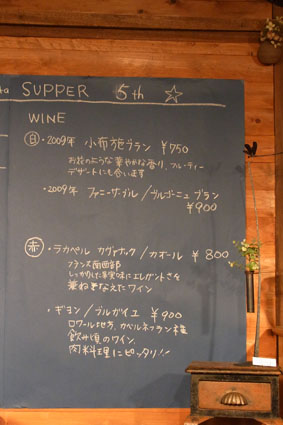 ta SUPPER 5th ☆
WINE
白・2009年 小布施ブラン ¥750
お花のような華やかな香り、フルーティー
デザートにも合います
・2009年 ファニーサーブル/ブルゴーニュ ブラン
¥900
赤・ラカペル カヴァナック/カオール ¥800
フランス南西部
しっかりした果実味にエレガントさを
兼ねそなえたワイン
・ギヨン/ブルガイユ ¥900
ロワール地方、カベルネフラン種
飲み頃のワイン
肉料理にピッタリ!!